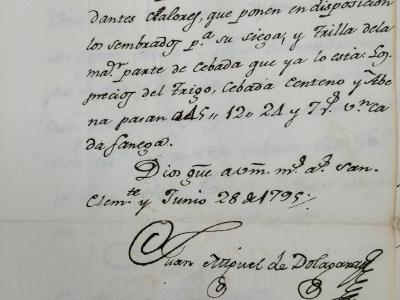 dantes Calores, que ponen en disposicion
los sembrados p.ª su siega, y Trilla dela
ma.r parte de Cebada que ya lo esta: Los
precios del Trigo, Cebada Centeno y Abe
na pasan a 45,, 12,, 24 y 7 r.s v.n ca
da fanega.
Dios gue a vm. m.s a.s San
Clem.te y Junio 28 de 1795,,
Juan Miguel de